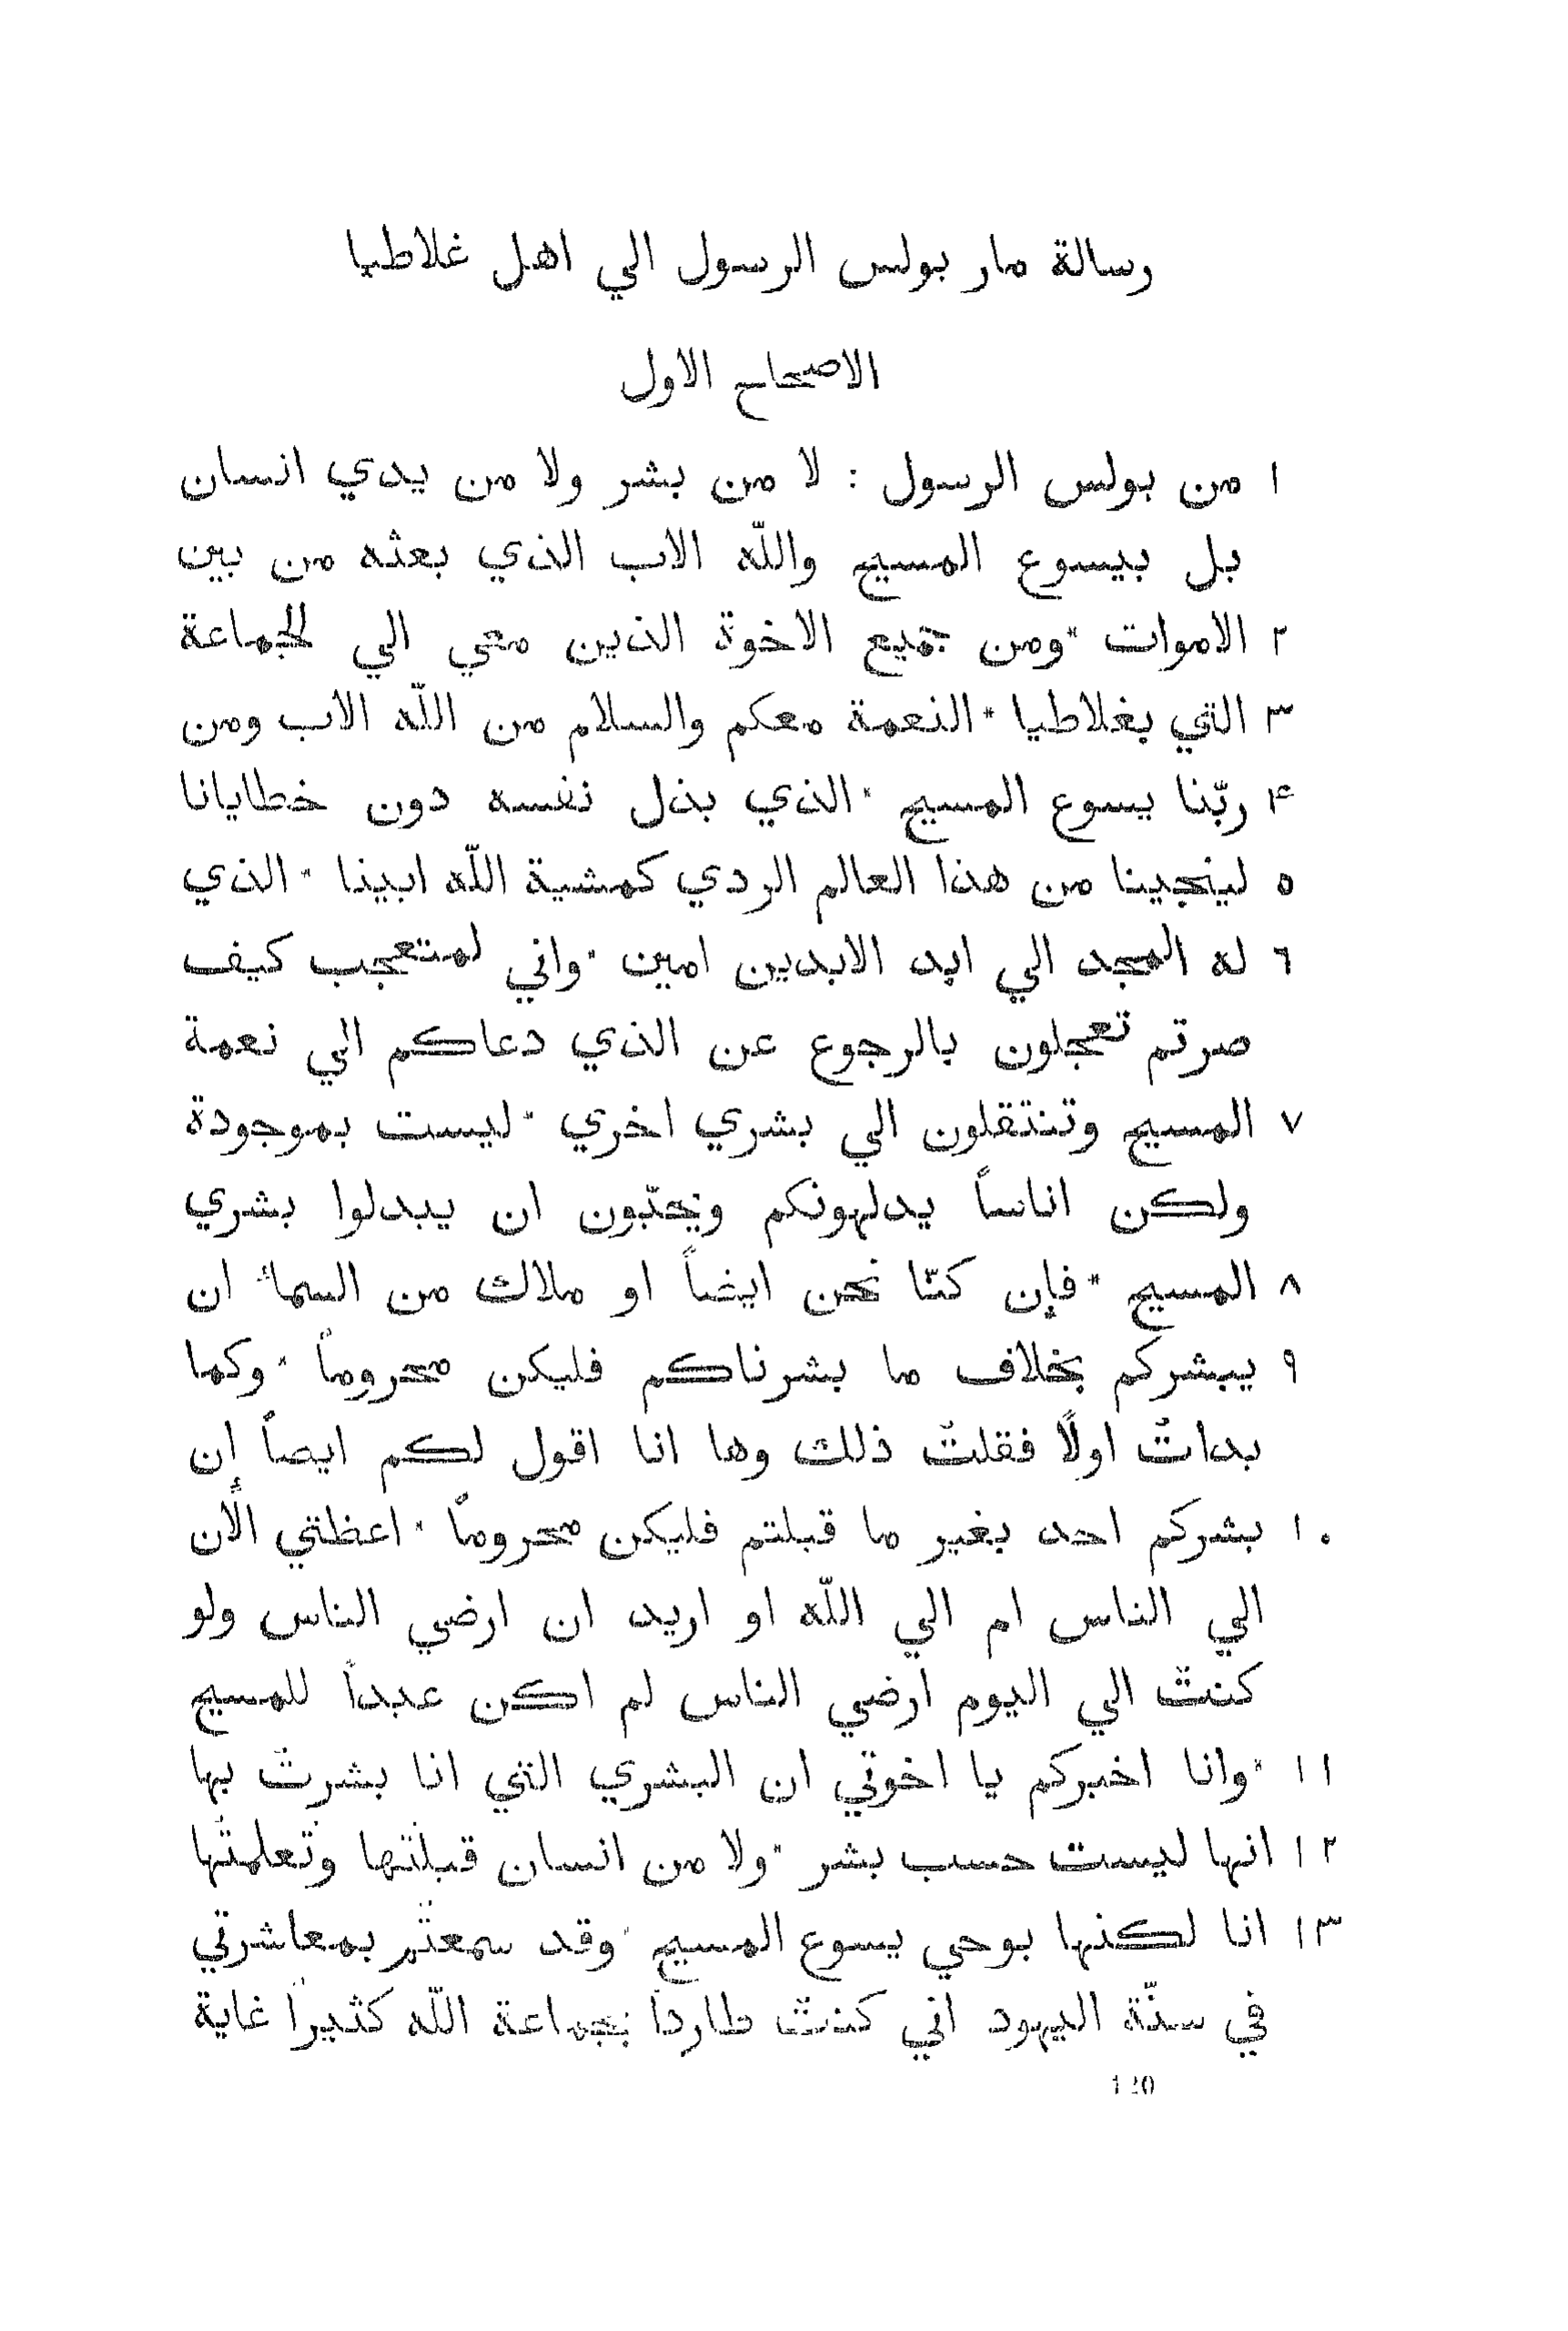 رسالة مار بولس الرسول الي اهل غلاطيا
الاصحاح الاول
١ من بولس الرسول : لا من بشر ولا من يدي انسان
بل بيسوع المسيح واللّه الاب الذي بعثه من بين
٢ الاموات * ومن جميع الاخوة الذين معي الي الجماعة
٣ التي بغلاطيا * النعمة معكم والسلام من اللّه الاب ومن
۴ ربّنا يسوع المسيح * الذي بذل نفسه دون خطايانا
٥ لينجينا من هذا العالم الردي كمشية اللّه ابينا * الذي
٦ له المجد الي ابد الابدين امين * واني لمتعجب كيف
صرتم تعجلون بالرجوع عن الذي دعاكم الي نعمة
٧ المسيح وتنتقلون الي بشري اخري * ليست بموجودة
ولكن اناساً يدلهونكم ويحبّون ان يبدلوا بشري
٨ المسيح * فإن كنّا نحن ايضاً او ملاك من السمآ ان
٩ يبشركم بخلاف ما بشرناكم فليكن محروماً * وكما
بدات اولًا فقلت ذلك وها انا اقول لكم ايصاً إن
١٠ بشركم احد بغير ما قبلتم فليكن محروماً * اعظتي الآن
الي الناس ام الي اللّه او اريد ان ارضي الناس ولو
كنت الي اليوم ارضي الناس لم اكن عبداً للمسيح
١١ * وانا اخبركم يا اخوتي ان البشري التي انا بشرت بها
١٢ انها ليست حسب بشر * ولا من انسان قبلتها وتعلمتها
١٣ انا لكنها بوحي يسوع المسيح * وقد سمعتم بمعاشرتي
في سنّة اليهود اني كنت طارداً بجماعة اللّه كثيراً غاية
120